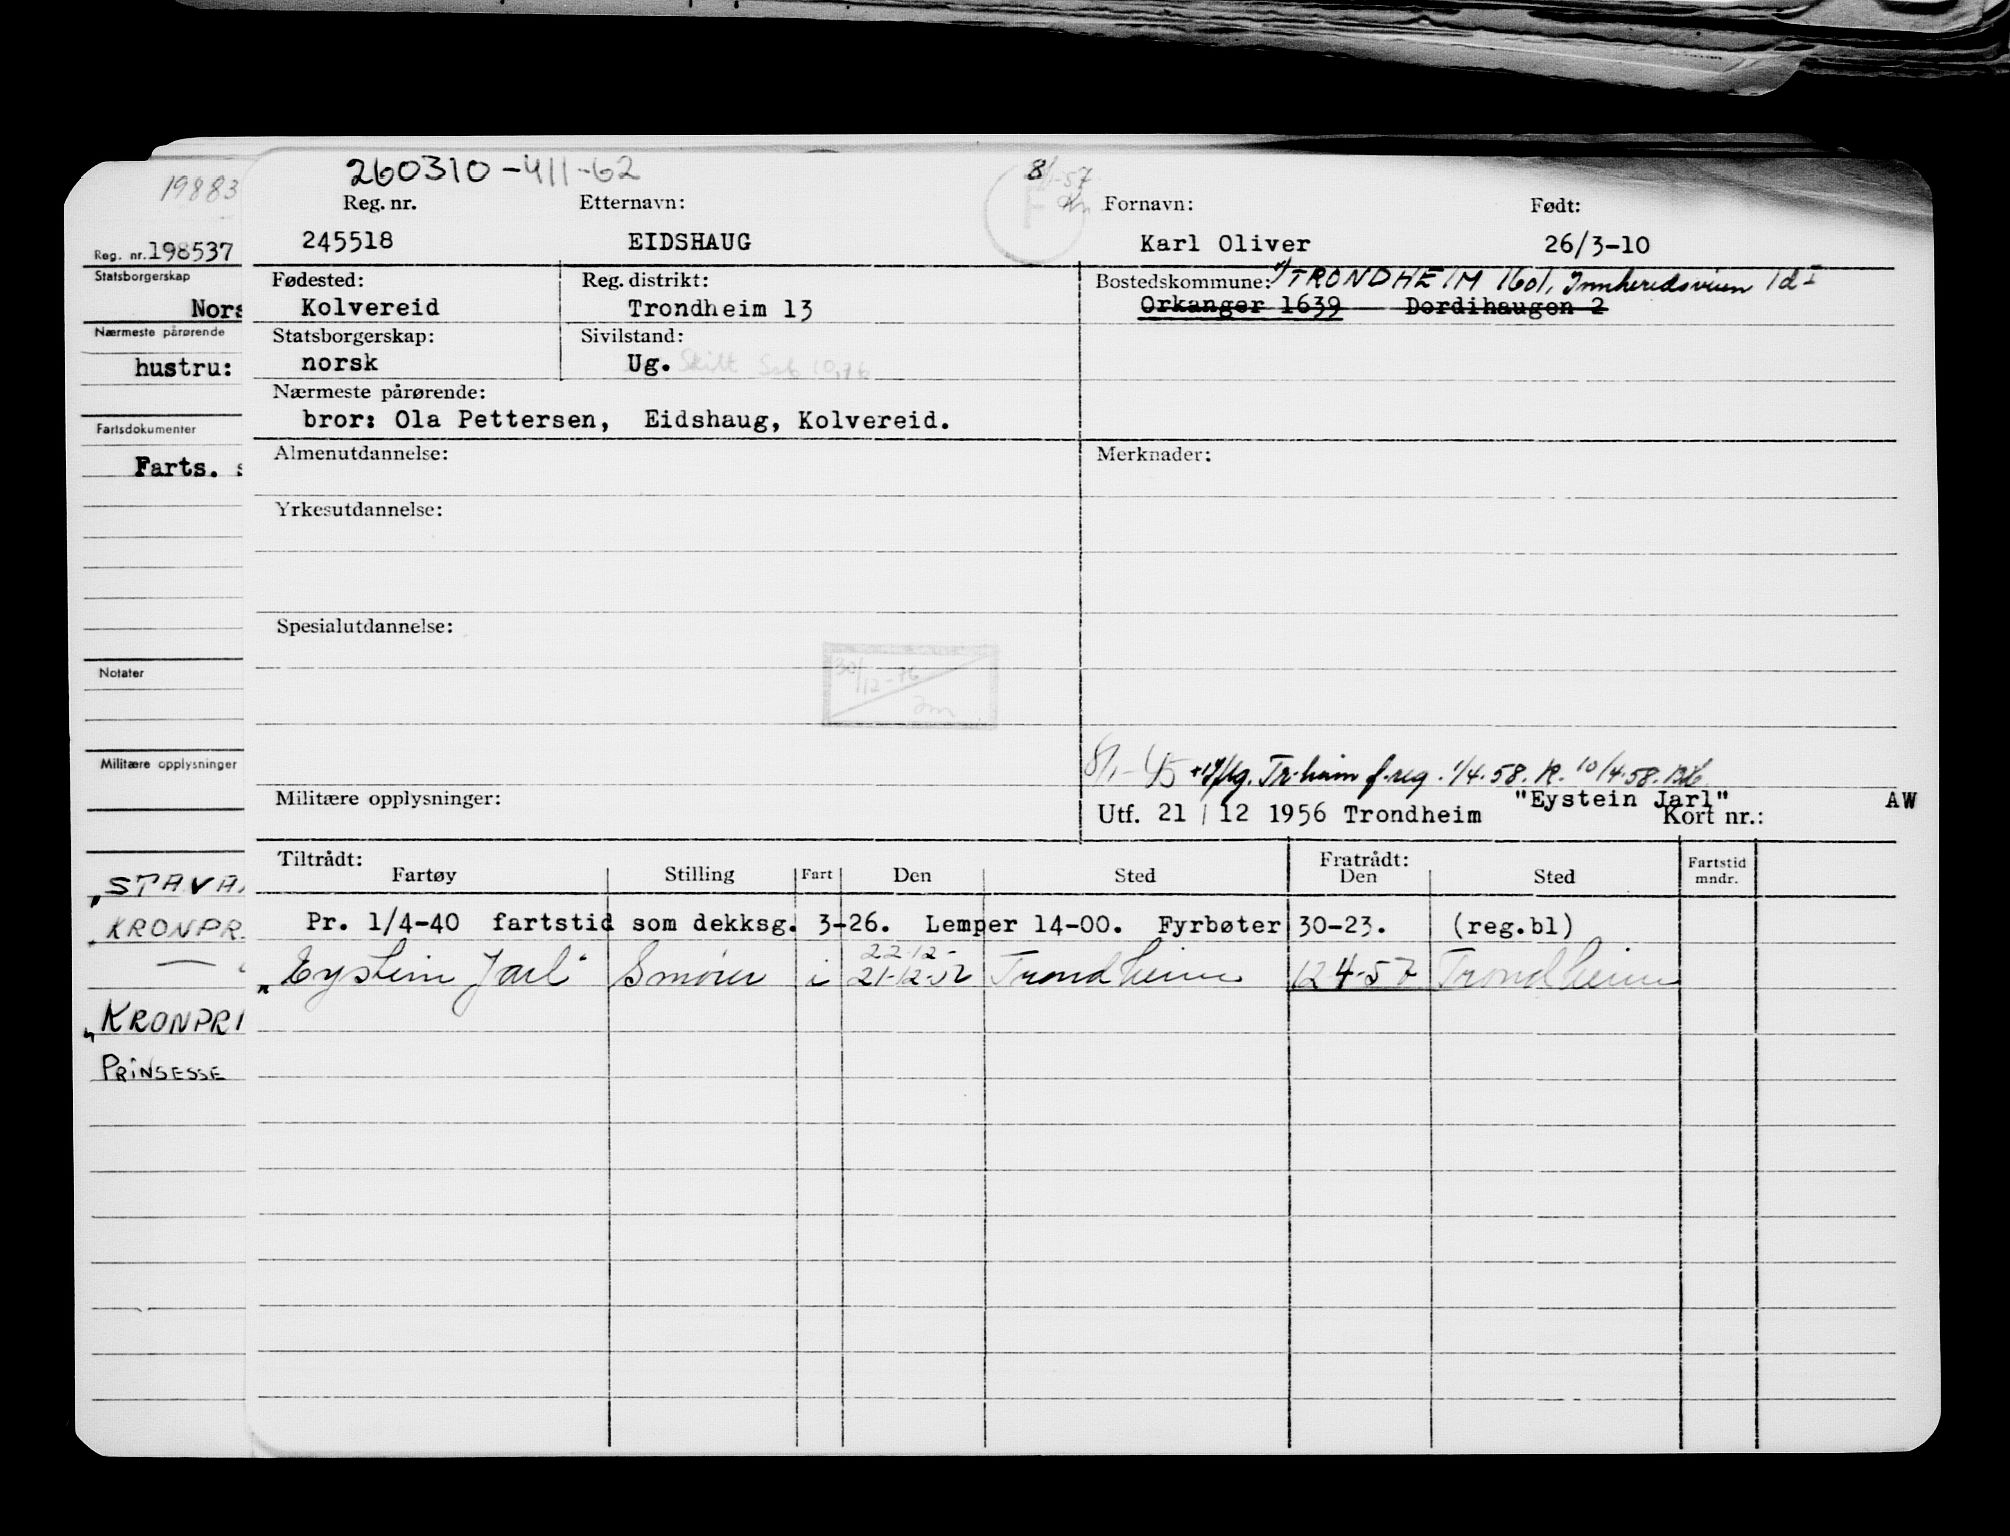 19883
Reg. nr. 198537
Statsborgerskap
Nors
Nærmeste pårørende
hustru:
Fartsdokumenter
Farts. s
Notater
Militære opplysninger
"STAVA
"KRONPR.
"KRONPRI
PRINSESSE
260310-411-62
8/1-57
F
Reg. nr. Etternavn: Fornavn: Født:
245518 EIDSHAUG Karl Oliver 26/3-10
Fødested: Reg. distrikt: Bostedskommune: TRONDHEIM 1601, Innherredsveien 1d I
Kolvereid Trondheim 13 Orkanger 1639 Dordihaugen 2
Statsborgerskap: Sivilstand:
norsk Ug. Skilt Ssb 10.76
Nærmeste pårørende:
bror: Ola Pettersen, Eidshaug, Kolvereid.
Almenutdannelse: Merknader:
Yrkesutdannelse:
Spesialutdannelse:
30/12-76
8/1-45 Tr.heim f.reg. 1/4.58. R. 10/4.58.
Militære opplysninger:
"Eystein Jarl" AW
Utf. 21 / 12 1956 Trondheim Kort nr.:
Tiltrådt: Fratrådt: Fartstid
Fartøy Stilling Fart Den Sted Den Sted mndr.
Pr. 1/4-40 fartstid som dekksg. 3-26. Lemper 14-00. Fyrbøter 30-23. (reg.bl)
22-12-
"Eystein Jarl" Smører i 21-12-52 Trondheim 12 4-57 Trondheim